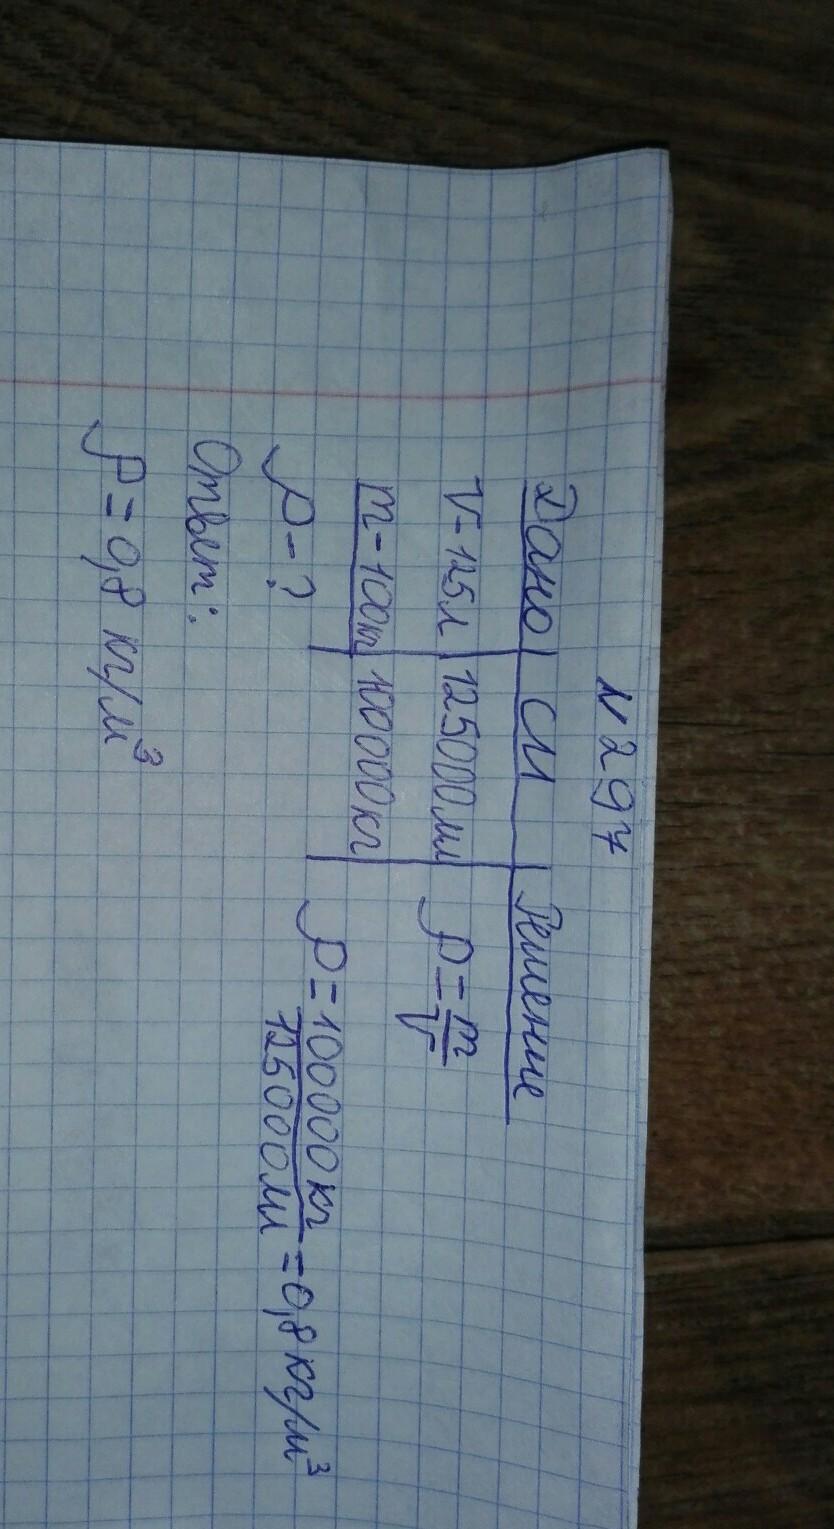 N 297
Дано СИ Решение
V-125л 125000мл ρ=m/V
m-100т 100000кг
ρ-? ρ=100000кг/125000мл=0,8кг/м³
Ответ:
ρ=0,8 кг/м³